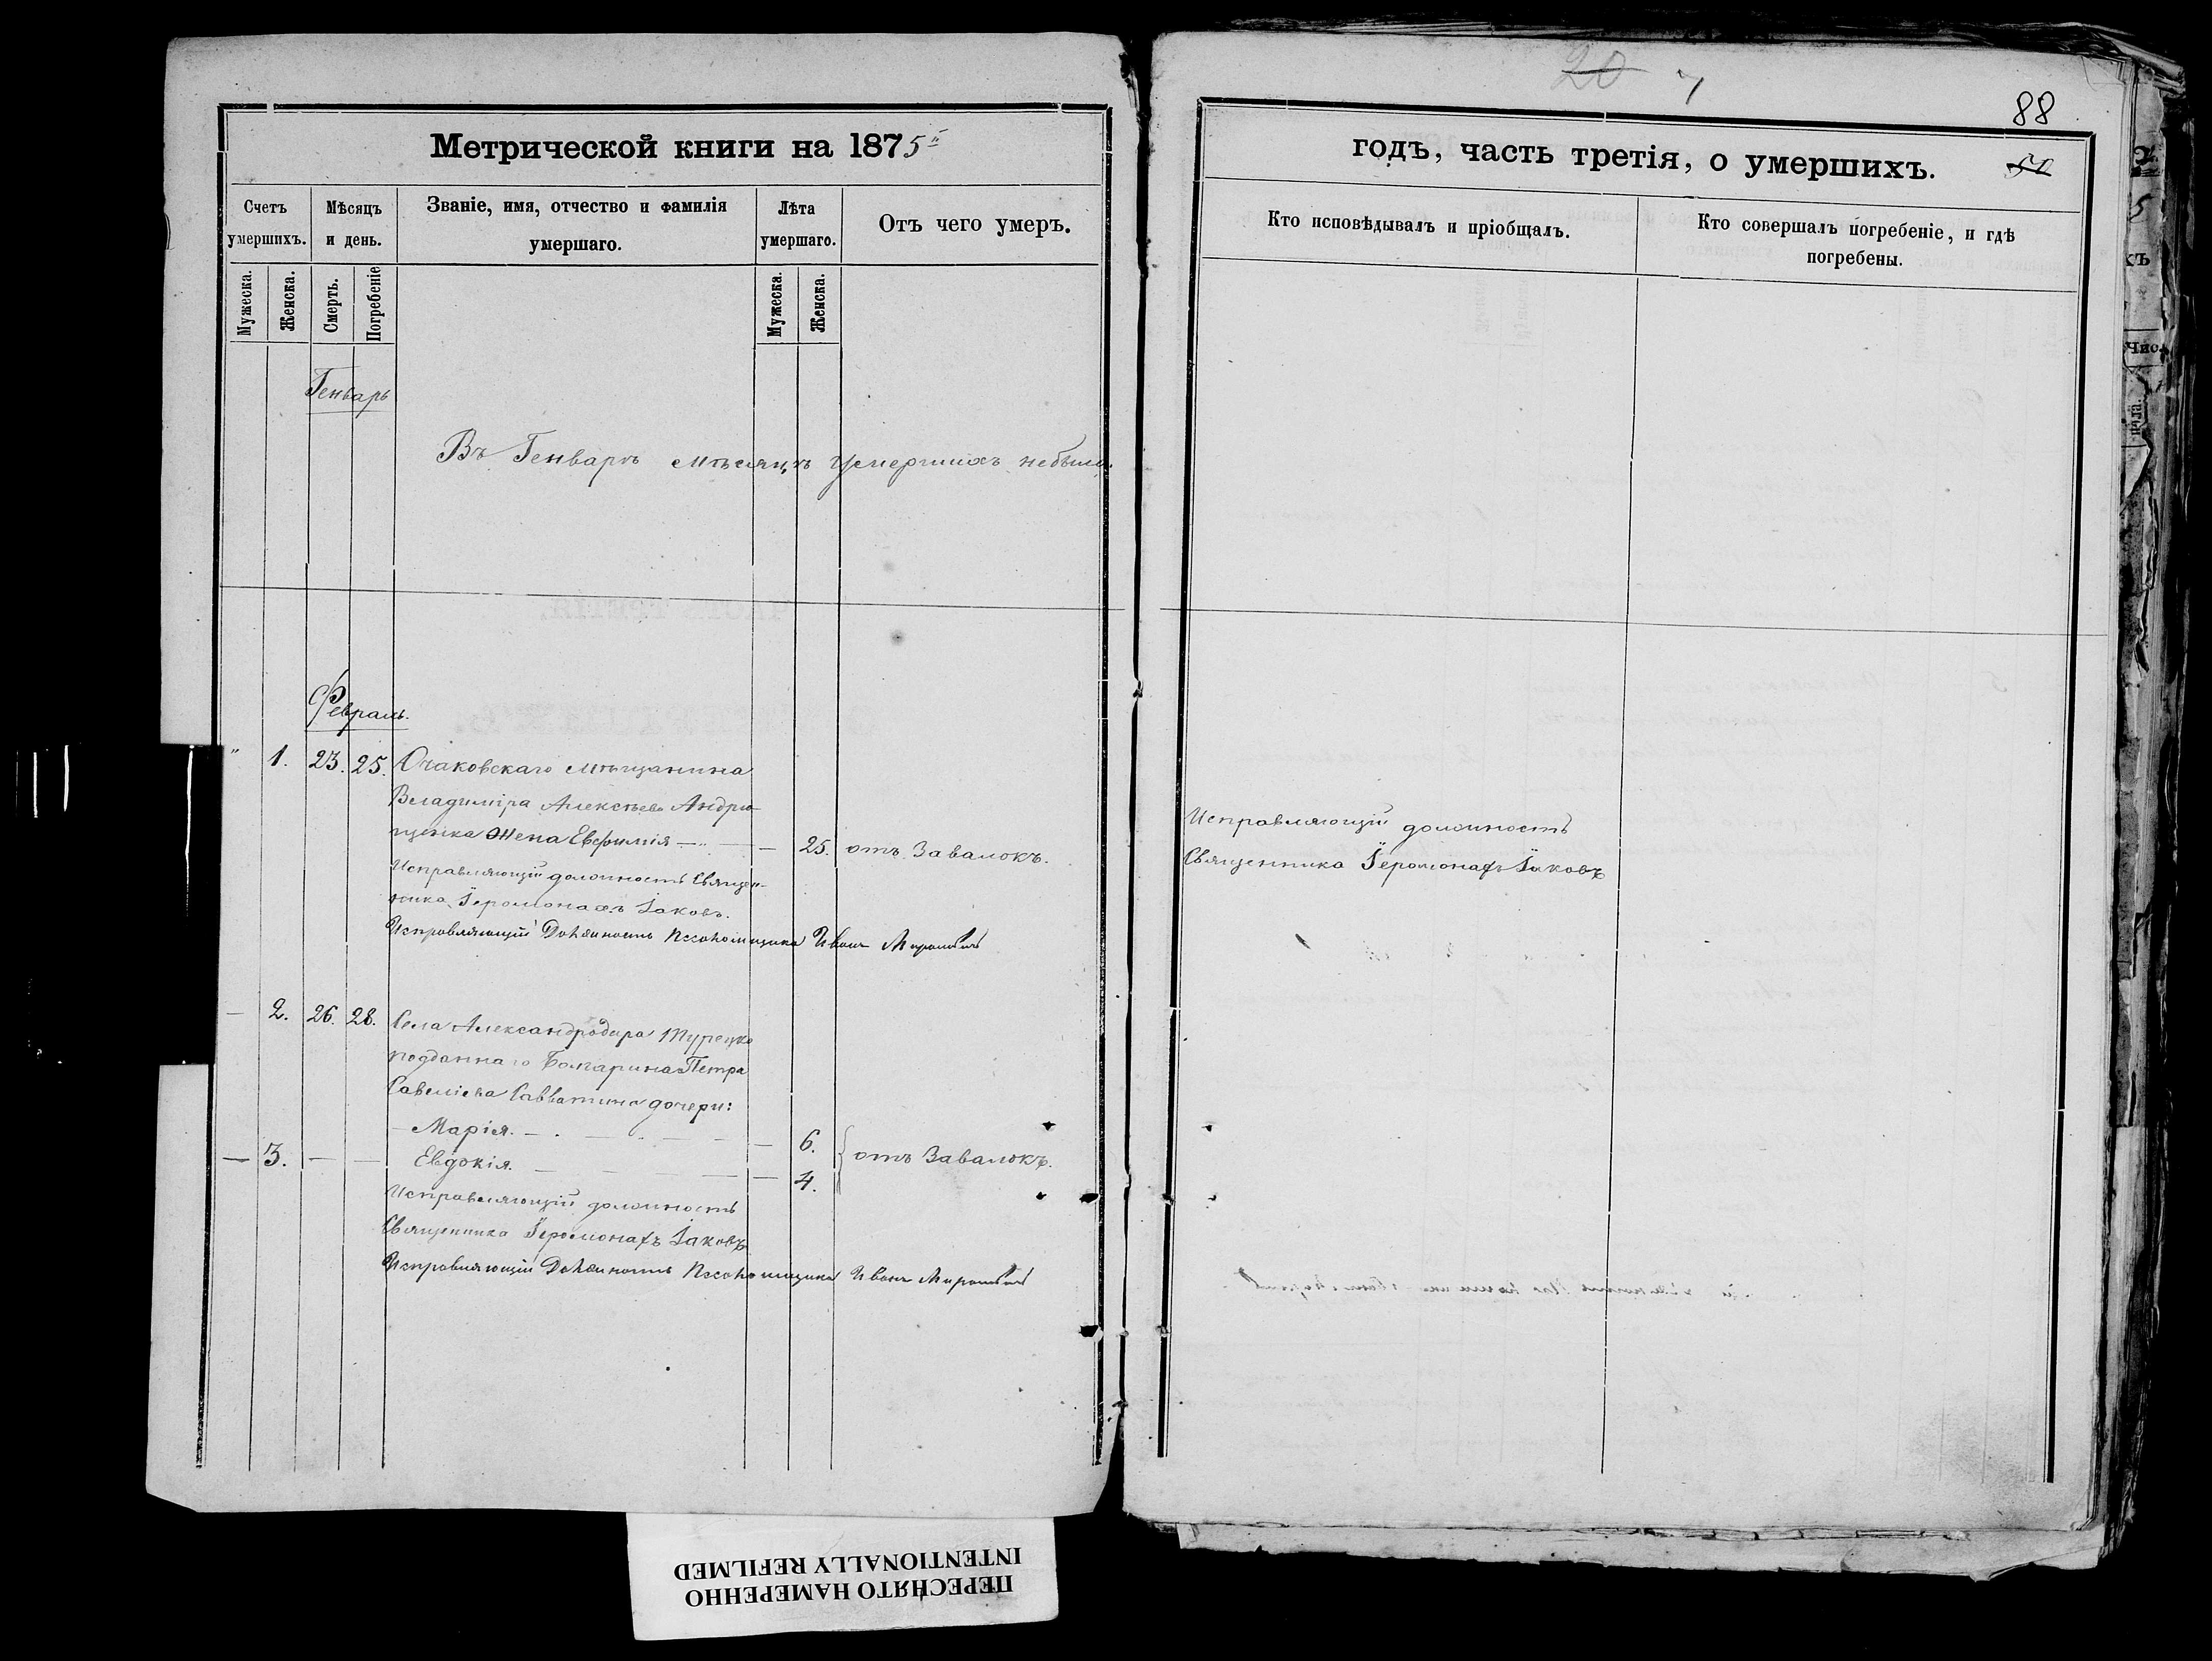 20 7
88
50
Метрической книги на 1875й
годъ, часть третія, о умершихъ.
Счетъ умершихъ.
Мѣсяцъ и день.
Званіе, имя, отчество и фамилія умершаго.
Лѣта умершаго.
Отъ чего умеръ.
Кто исповѣдывалъ и пріобщалъ.
Кто совершалъ погребеніе, и гдѣ погребены.
Мужеска.
Женска.
Смерть.
Погребеніе
Мужеска.
Женска.
Генварь
Въ Генварѣ мѣсяцѣ умершихъ небыло.
Февраль.
" 1. 23. 25. Очаковскаго мѣщанина
Владиміра Алексѣева Андрю-
щенка жена Евфимія — 25. отъ Завалокъ.
Исправляющій должность Священ-
ника Іеромонахъ Іаковъ.
Исправляющій Должность Псаломщика Иванъ
Исправляющій должность
Священника Іеромонахъ Іаковъ
— 2. 26. 28. Села Александродара Турецко
подданнаго Болгарина Петра
Савеліева Савватина дочери:
Марія. — 6.
— 3. — — Евдокія. — 4. отъ Завалокъ.
Исправляющій должность
Священника Іеромонахъ Іаковъ
Исправляющій Должность Псаломщика Иванъ
ПЕРЕСНЯТО НАМЕРЕННО
INTENTIONALLY REFILMED